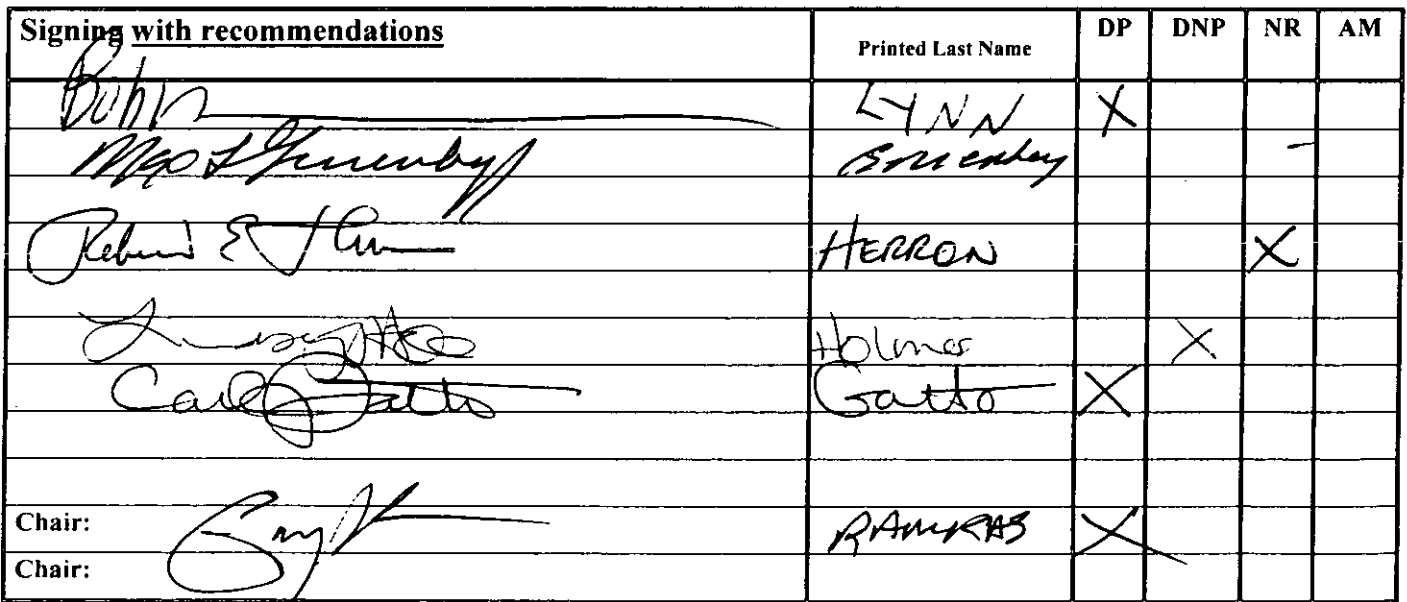 Signing with recommendations Printed Last Name DP DNP NR AM
LYNN X
Gruenberg -
HERRON X
Lindsey Holmes Holmes X
Carl Gatto Gatto X
Chair: RAMRAS X
Chair: